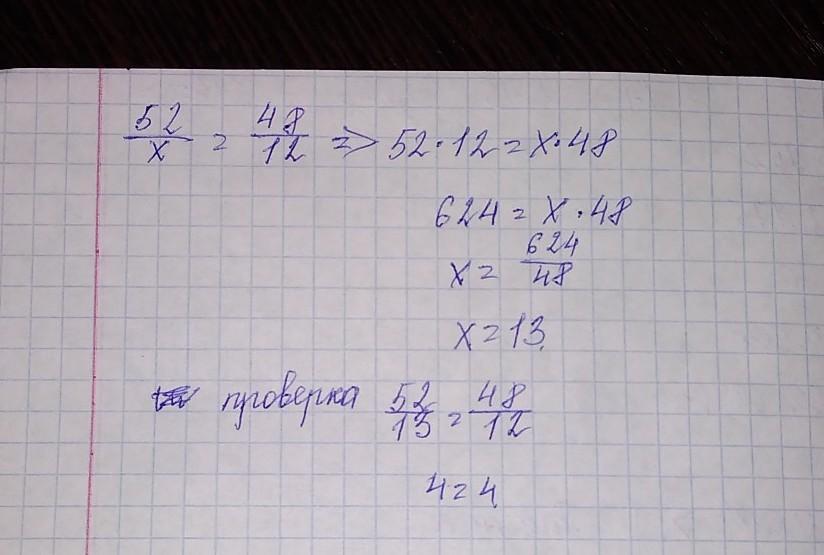 52/x = 48/12 => 52·12=x·48
624 = x·48
x = 624/48
x=13.
проверка 52/13 = 48/12
4=4